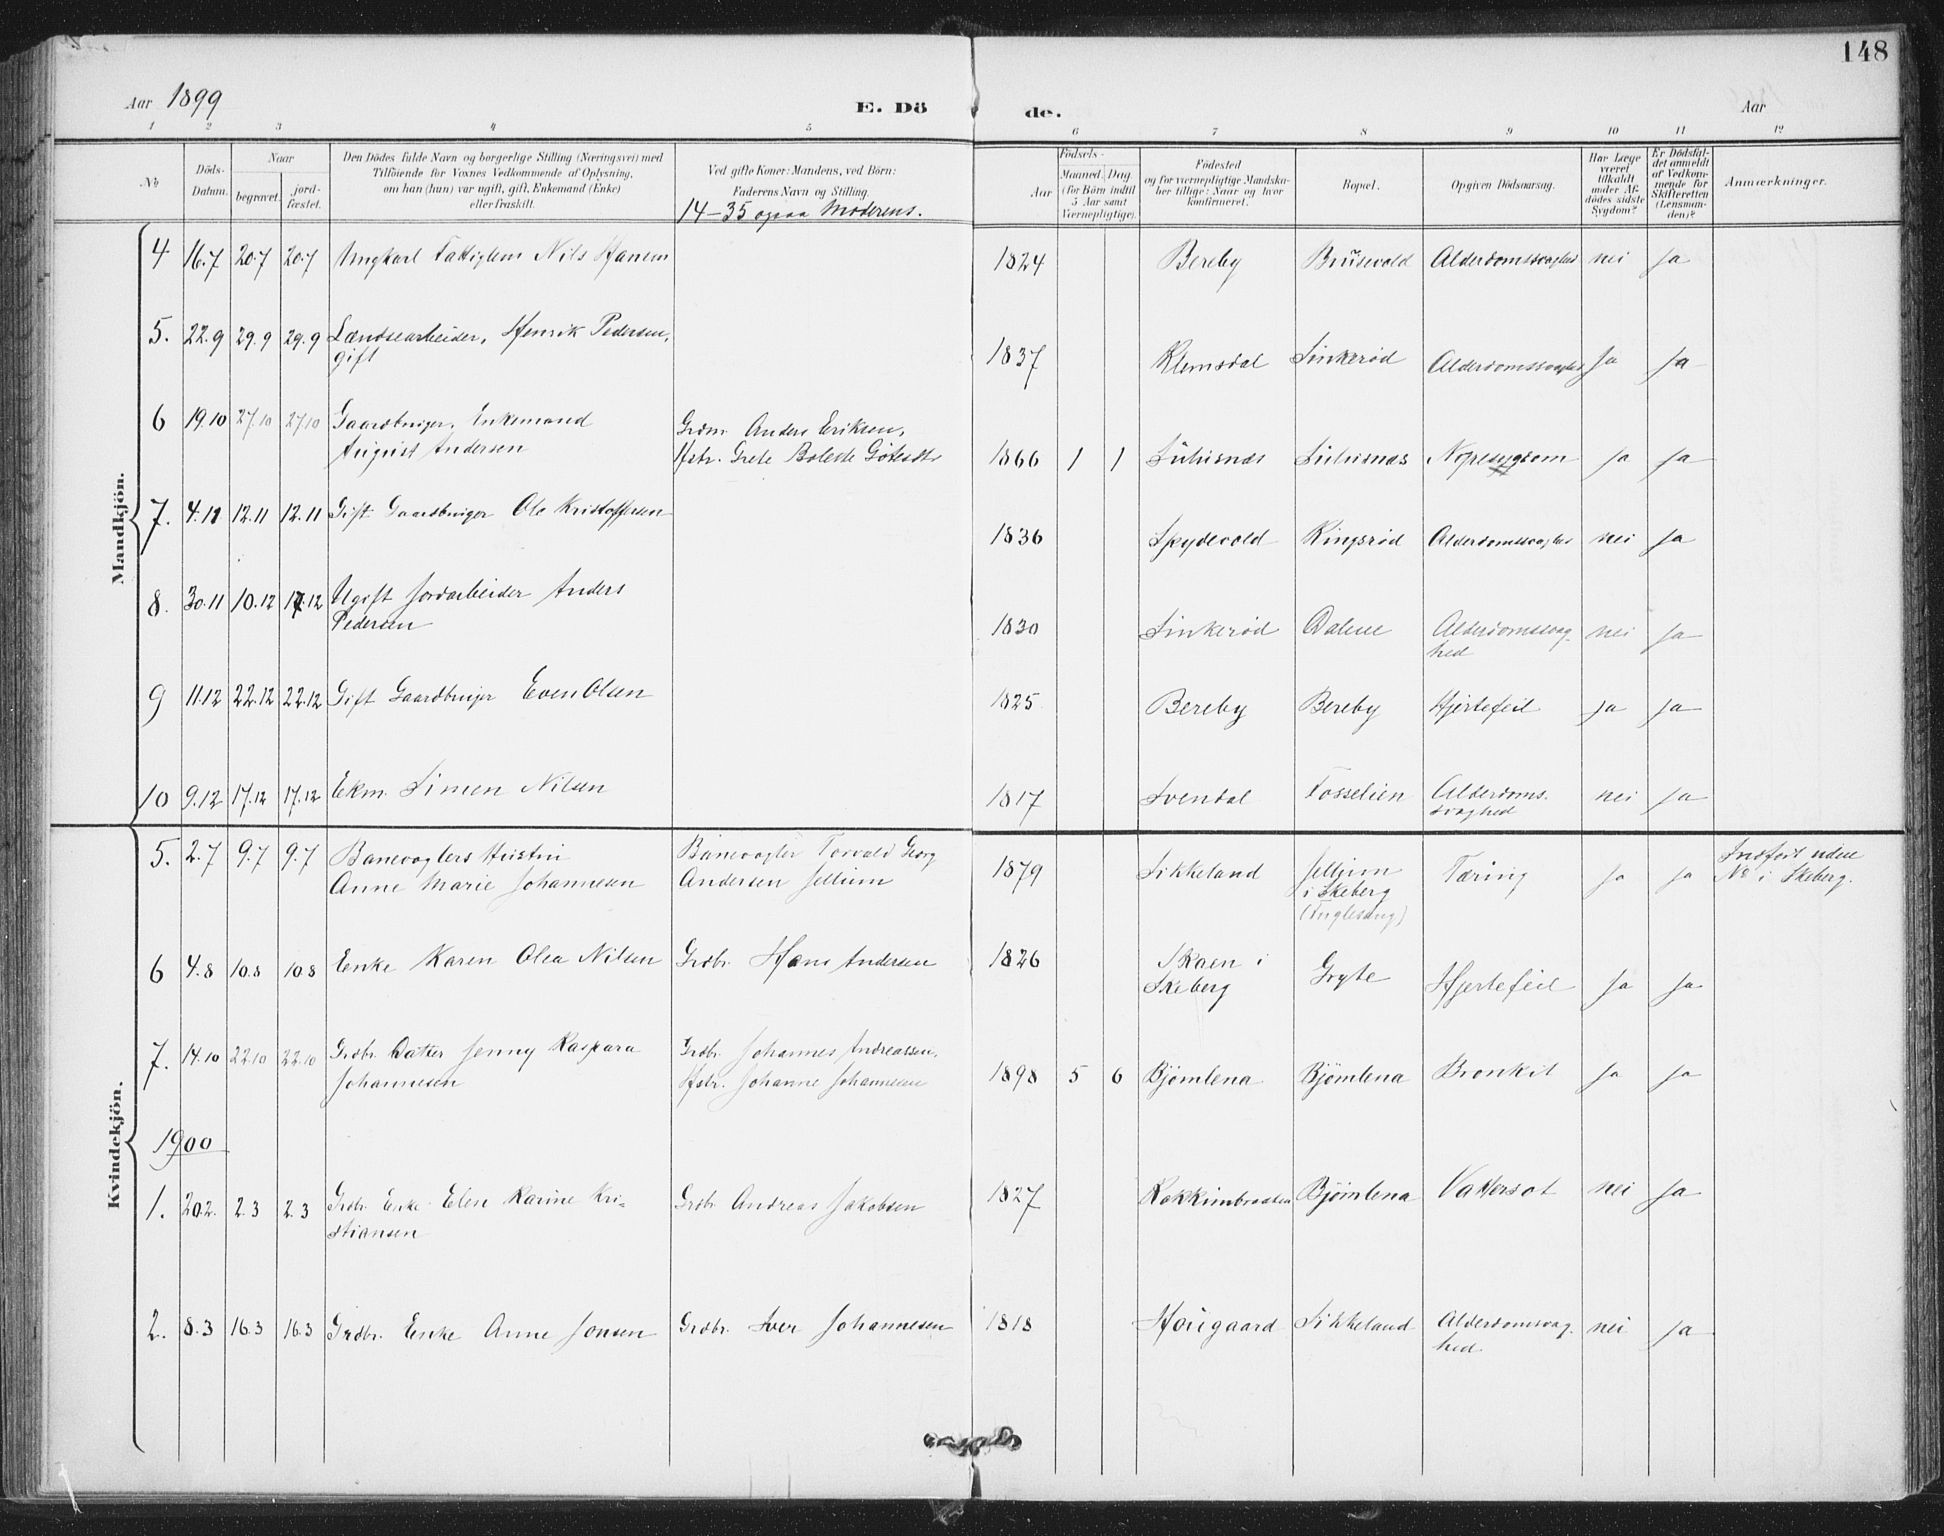 148
Aar 1899
E. Dö
de.
Aar
1 2 3 4 5 6 7 8 9 10 11 12
No
Döds-
Datum.
Naar
begravet.
jord-
fæstet.
Den Dödes fulde Navn og borgerlige Stilling (Næringsvei) med
Tilföiende for Voxnes Vedkommende af Oplysning,
om han (hun) var ugift, gift, Enkemand (Enke)
eller fraskilt.
Ved gifte Koner: Mandens, ved Börn:
Faderens Navn og Stilling.
14-35 ogsaa Moderens.
Födsels-
Aar
Maaned.
Dag.
(for Börn indtil
5 Aar samt
Værnepligtige).
Födested
og for værnepligtige Mandska-
ber tillige: Naar og hvor
konfirmeret.
Bopæl.
Opgiven Dödsaarsag.
Har Læge
været
tilkaldt
under Af-
dödes sidste
Sygdom?
Er Dödsfal-
det anmeldt
af Vedkom-
mende for
Skifteretten
(Lensman-
den)?
Anmærkninger.
Mandkjön.
4 16.7 20.7 20.7 Ungkarl Fattiglem Nils Hansen 1824 Bereby Brusevold Alderdomssvaghed nei ja
5. 22.9 29.9 29.9 Lændsearbeider, Henrik Pedersen,
gift 1837 Klemsdal Sinkerød Alderdomssvaghed Ja ja
6 19.10 27.10 27.10 Gaardbruger, Enkemand
August Andersen
Grdm. Anders Eriksen,
Hstr. Grete Bolette
1866 1 1 ja ja
7. 4.11 12.11 12.11 Gift Gaardbruger Ole Kristoffersen 1836 Spydevold Ringsrød Alderdomssvaghed nei ja
8. 30.11 10.12 17.12 Ugift Jordarbeider Anders
Pedersen 1830 Sinkerød Dalene Alderdomssvag-
hed nei ja
9 11.12 22.12 22.12 Gift Gaardbruger Even Olsen 1825 Bereby Bereby Hjertefeil ja ja
10 9.12 17.12 17.12 Ekm. Simen Nilsen 1817 Svendal Fosselien Alderdoms-
svaghed nei ja
Kvindekjön.
5. 2.7 9.7 9.7 Banevogters Hustru
Anne Marie Johannesen
Banevogter Torvald Georg
Andersen Jellum
1879 Sikkeland Jellum
i Skeberg
Tæring Ja Ja
Indført uden
No i Skeberg.
6 4.8 10.8 10.8 Enke Karen Olea Nilsen Grdbr. Hans Andersen 1826 Skaen i
Skeberg
Gryte Hjertefeil Ja Ja
7. 14.10 22.10 22.10 Grdbr. Datter Jenny Kaspara
Johannesen
Grdbr. Johannes Andreassen,
Hstr. Johanne Johannesen
1898 5 6 Bjømlena Bjømlena Bronkit Ja Ja
1900
1. 20.2. 2.3 2.3 Grdbr. Enke Elen Karine Kri-
stiansen
Grdbr. Andreas Jakobsen
1827 Rakkimbraaten Bjømlena Vattersot nei Ja
2. 8.3 16.3 16.3 Grdbr. Enke Anne Jonsen Grdbr. Iver Johannesen 1818 Hougaard Sikkeland Alderdomssvag-
hed. nei ja